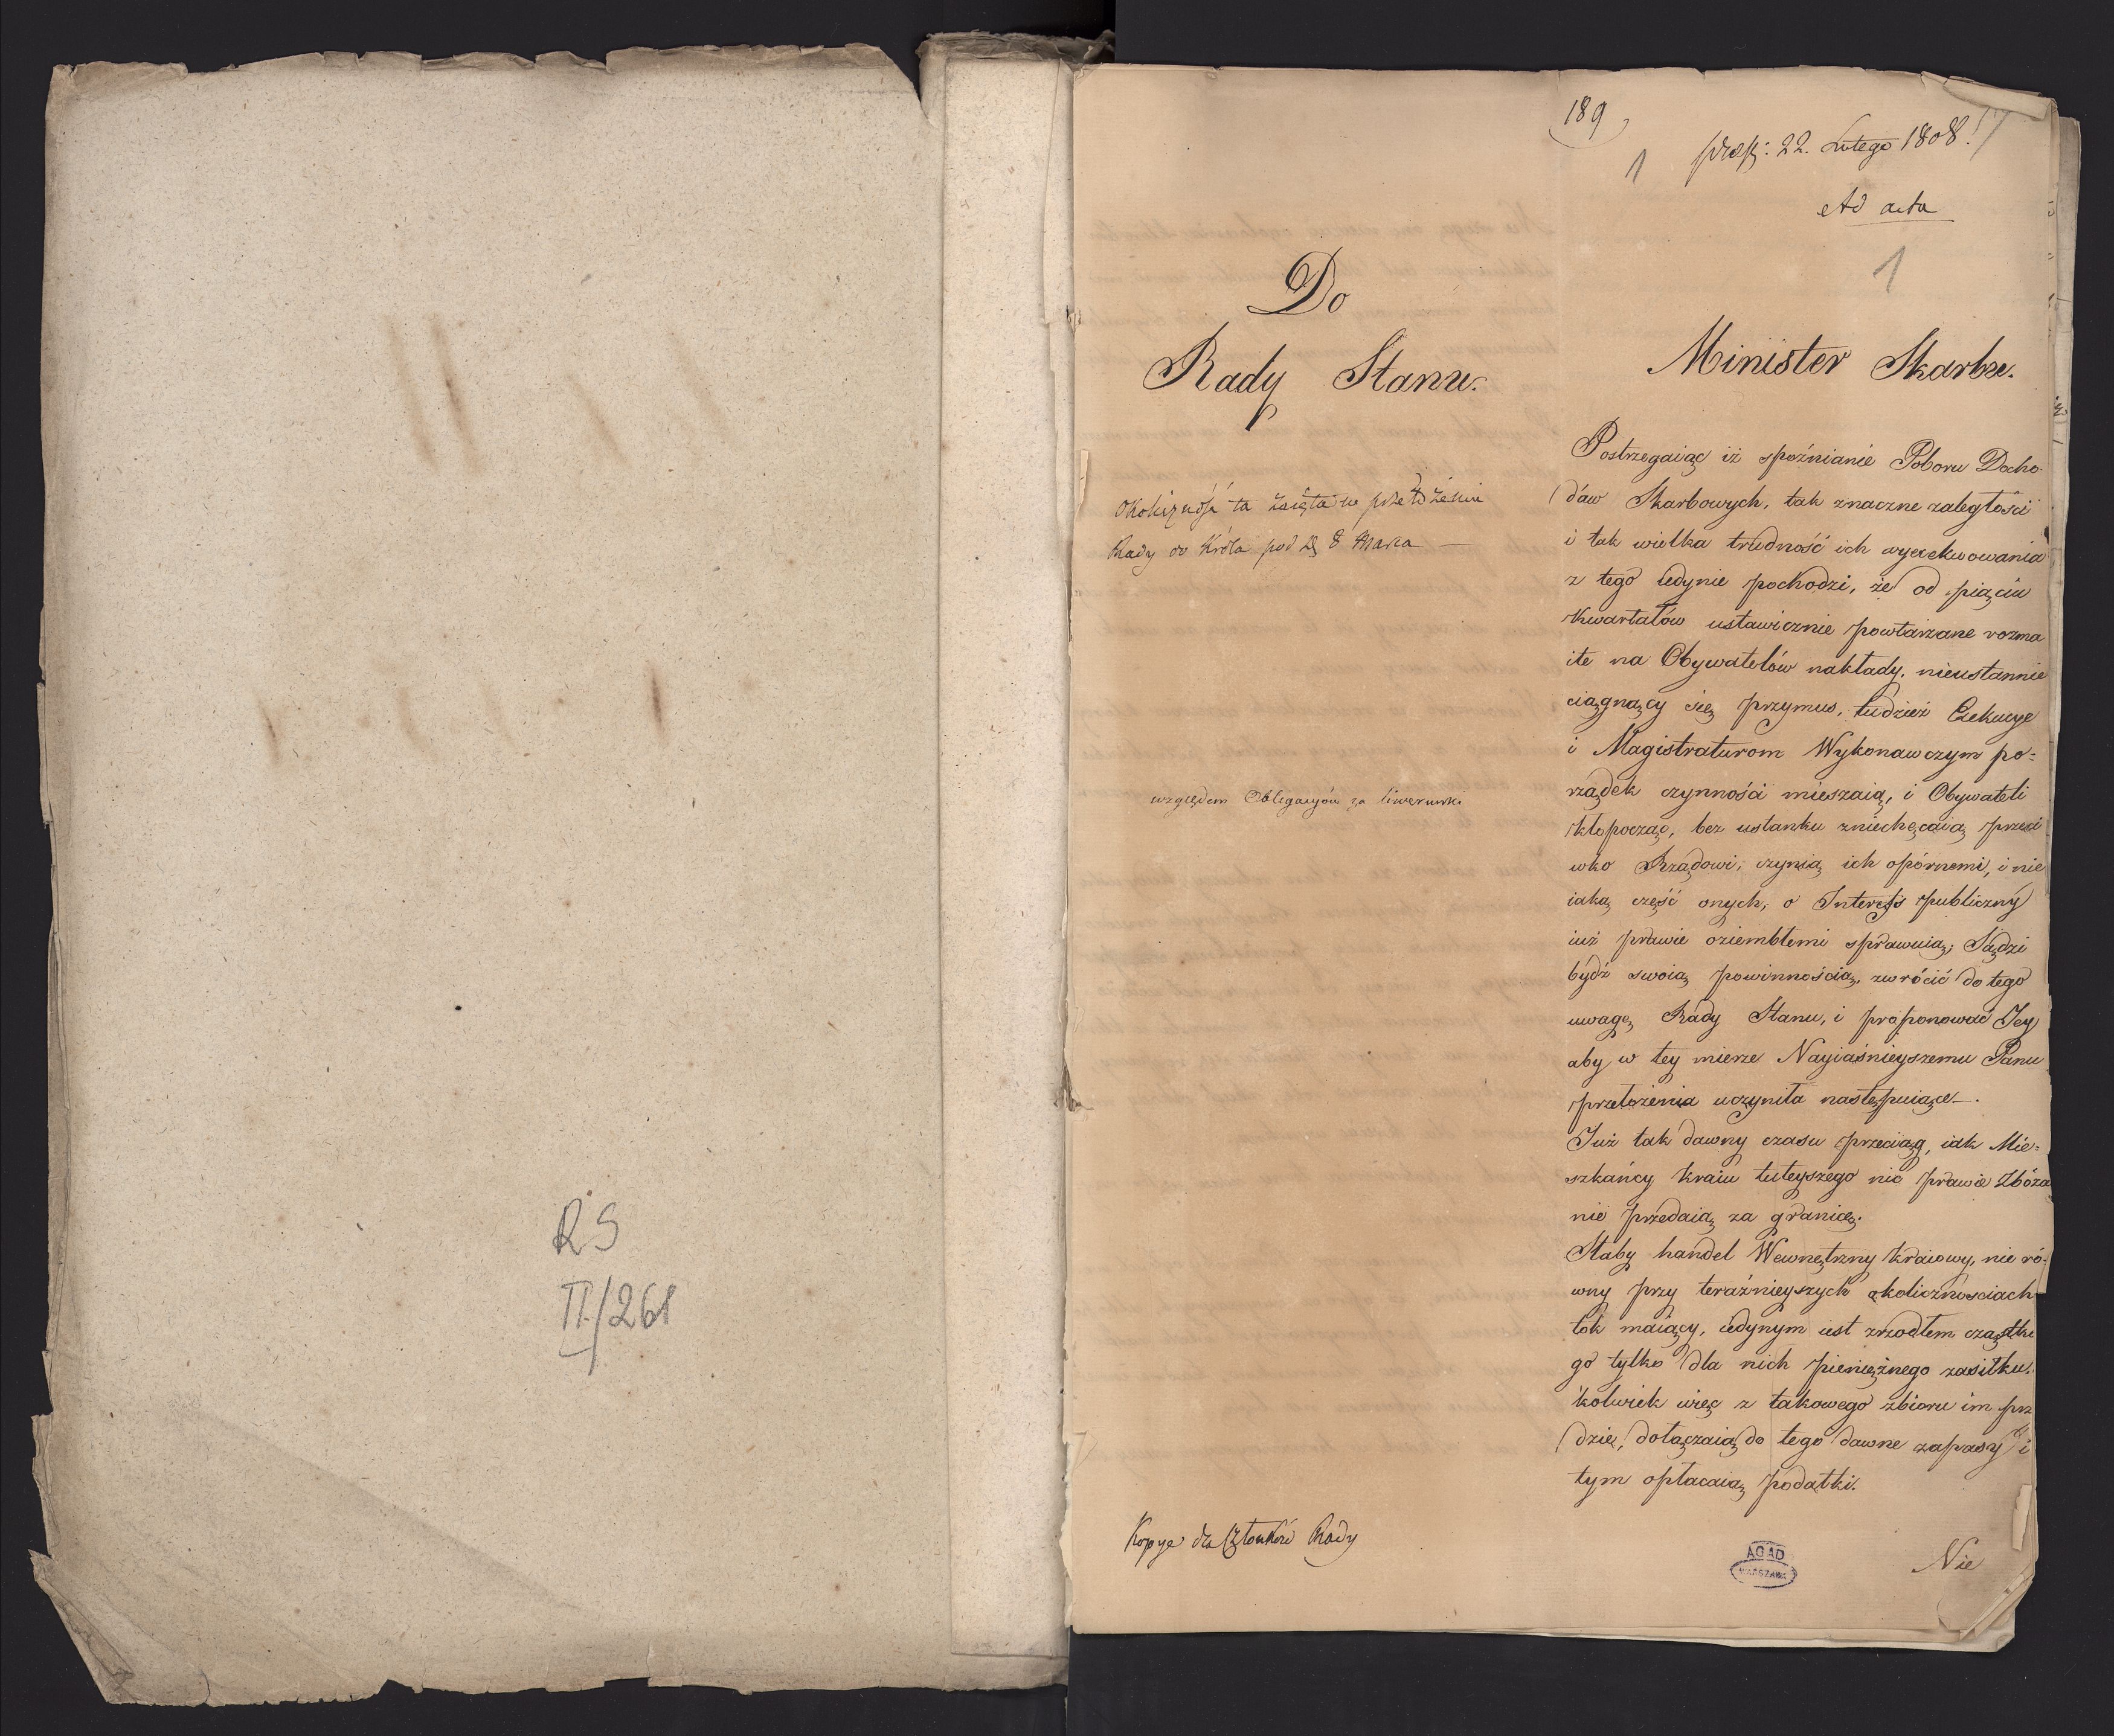 RS
II/261
189
1
præs: 22. Lutego 1808.
Ad acta
1
Do
Rady Stanu.
Okoliczność ta wzięta na przełożenie
Rady do Króla pod d. 8 Marca —
względem Obligacyów za liwerunki
Kopye dla Członków Rady
Minister Skarbu.
Postrzegaiąc iż spoźnianie Poboru Docho-
dów Skarbowych, tak znaczne zaległości
i tak wielka trudność ich wyexekwowania
z tego iedynie pochodzi, że od pięciu
kwartałów ustawicznie powtarzane rozma
ite na Obywatelów nakłady, nieustannie
ciągnący się przymus, tudzież Exekucye
i Magistraturom Wykonawczym po=
rządek czynności mieszaią, i Obywateli
kłopocząc, bez ustanku zniechęcaią przeci
wko Rządowi, czynią ich opórnemi, i nie
iaką część onych, o Interess publiczny
iuż prawie oziembłemi sprawuią; Sądzi
bydź swoią powinnością, zwrócić do tego
uwagę Rady Stanu, i proponować Jey
aby w tey mierze Nayiaśnieyszemu Panu
przełożenia uczyniła następuiące.—
Już tak dawny czasu przeciąg, iak Mie=
szkańcy kraiu tuteyszego nic prawie Zboża
nie przedaią za granicę.
Słaby handel Wewnętrzny kraiowy, nie ró-
wny przy teraźnieyszych okolicznościach
tok maiący, iedynym iest zrzodłem cząstko
go tylko dla nich pieniężnego zasiłku.
kolwiek więc z takowego zbioru im prz
dzie, dołączaią do tego dawne zapasy i
tym opłacaią podatki.
Nie
AGAD
WARSZAWA